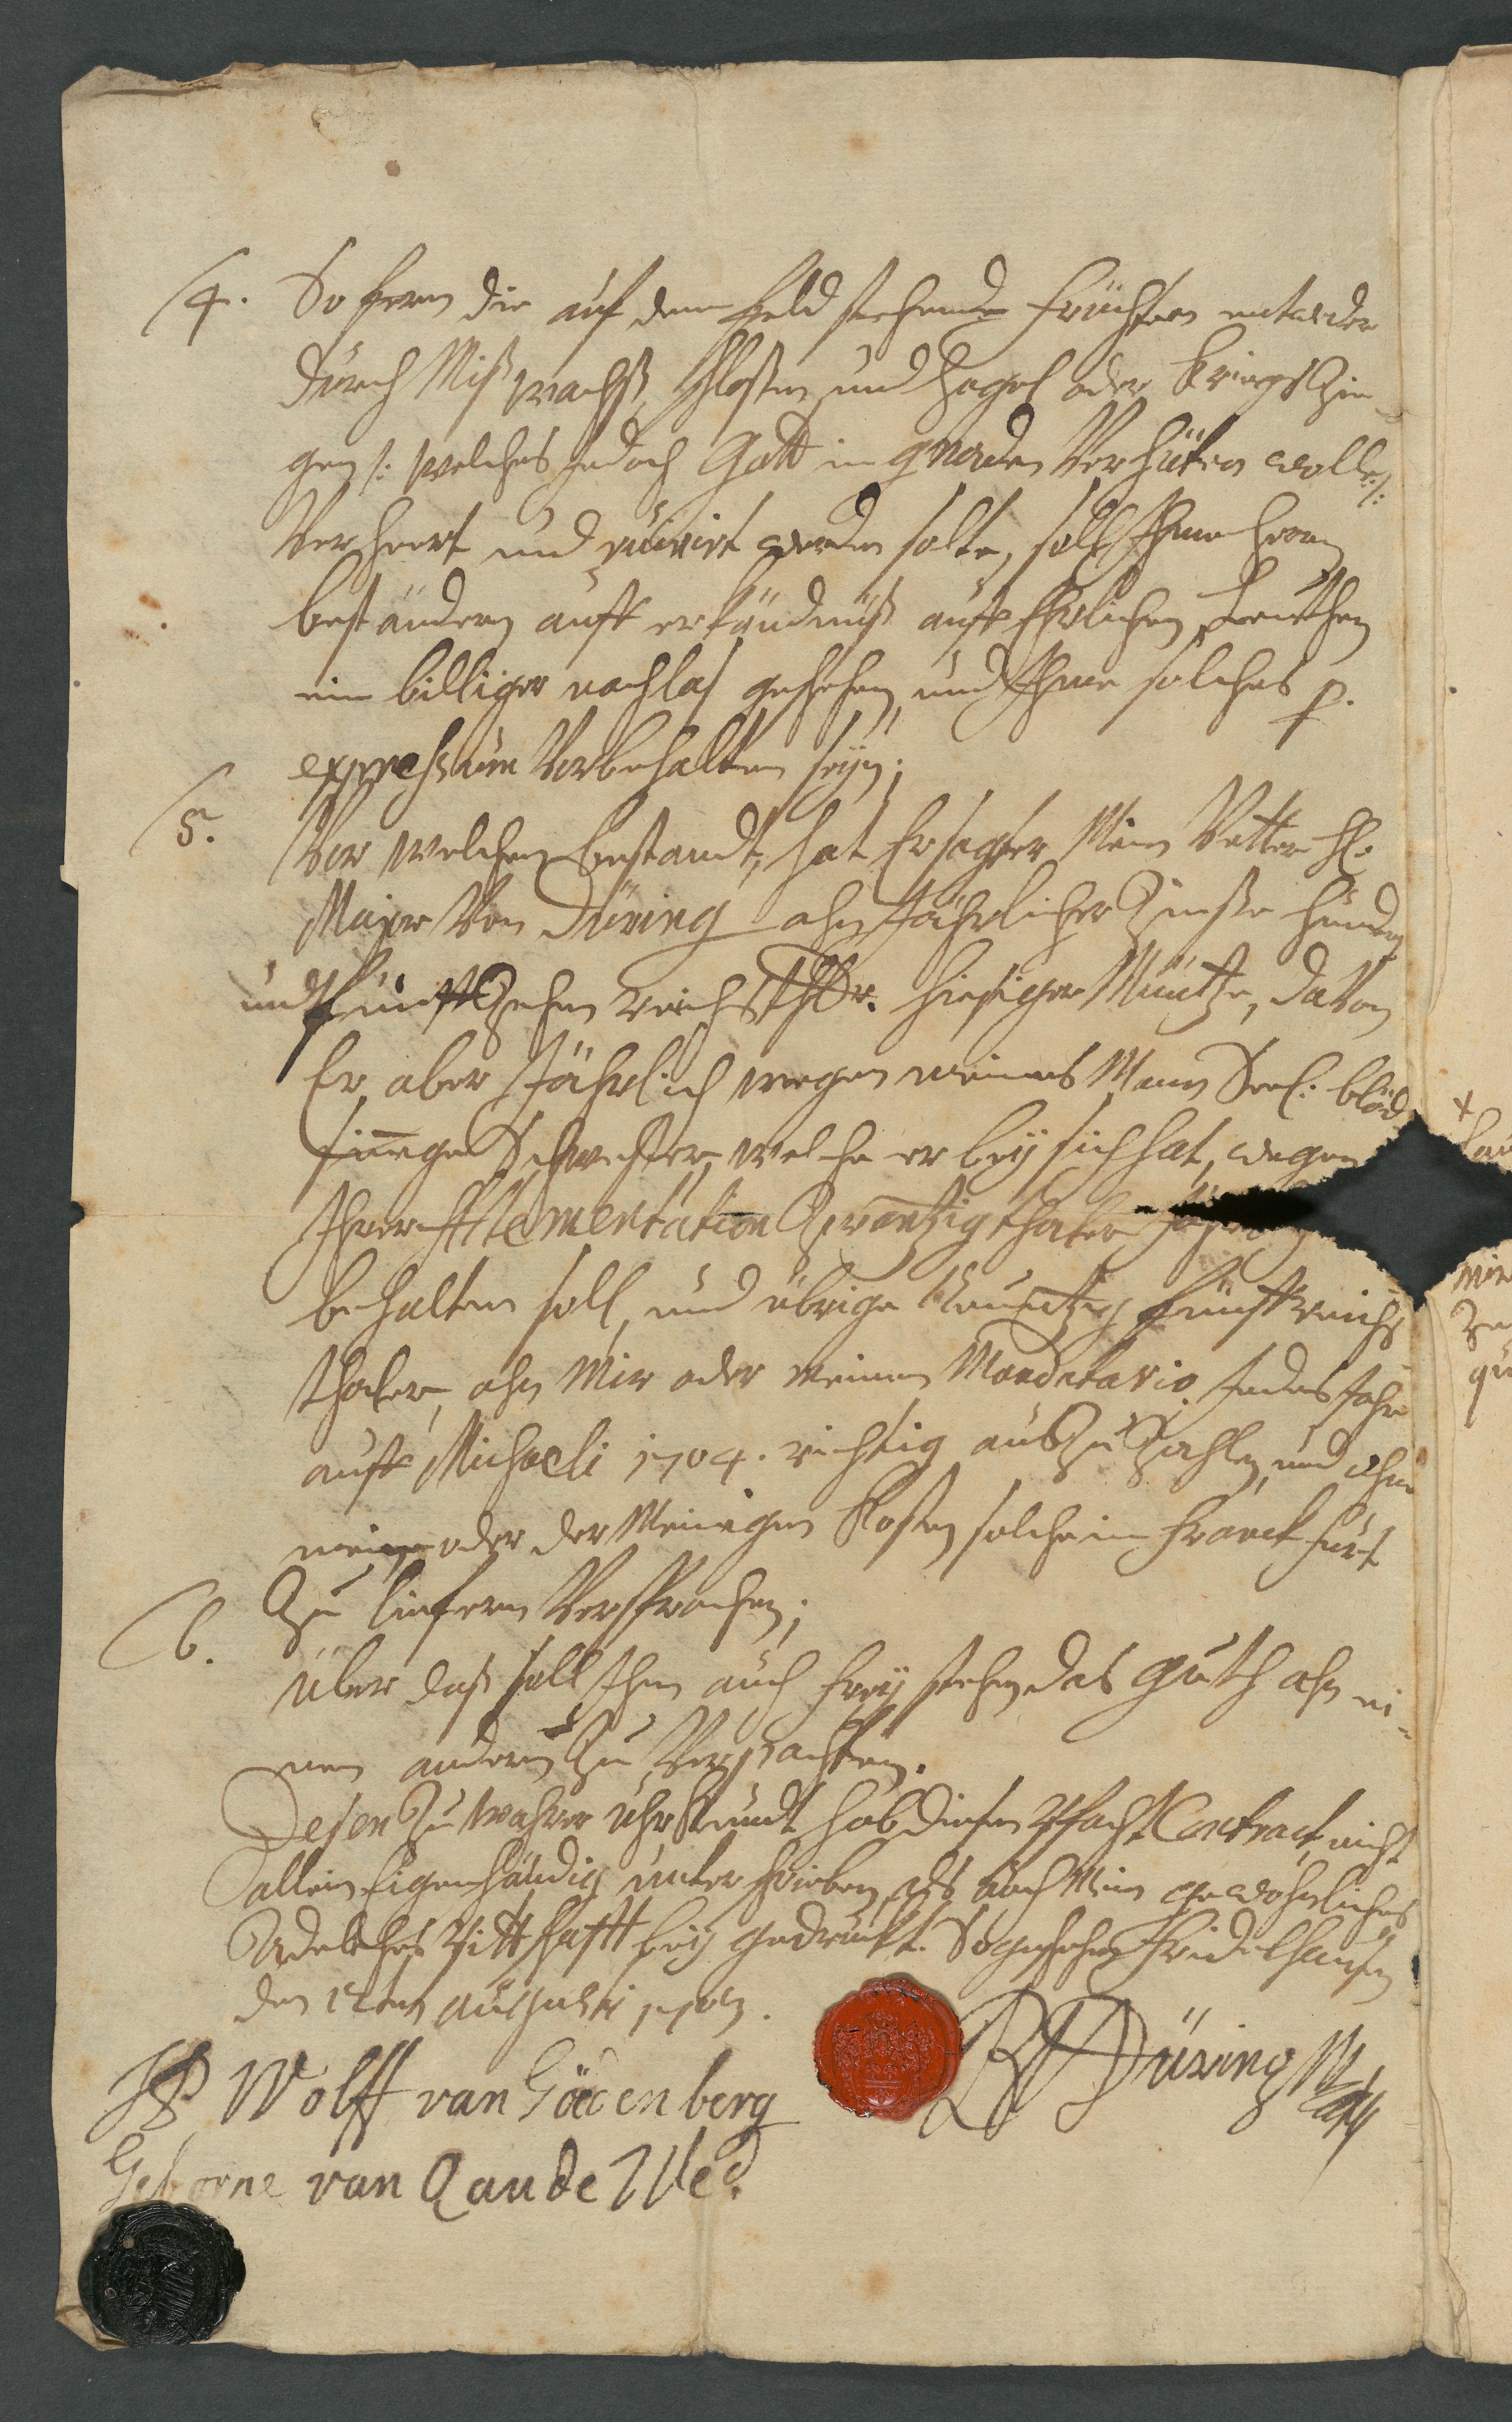 4. So fern die auf dem Feld stehende Früchten entweder
durch Mißwachß, Schloßen und Hagel oder Kriegs Zü-
gen /: welches jedoch Gott in gnaden Verhüten wolle :/
Verheert und ruinirt werden solte, soll Ihme Herrn
beständern auff erkändnüß auff Ehrlichen Leuthen
ein billiger nachlaß geschehen, und Ihme solches p.
expressum Vorbehalten seyn;
5. Vor welchen bestandt, hat Ersagter Mein Vetter H.
Major Von Düring ahn Jährlicher Zinße hundert
und fünffzehen reichsthlr. hiesiger Müntze, davon
Er aber Jährlich wegen meines Mann Seel: blöd
sinnigen Schwester, welche er bey sich hat, wegen
Ihrer Alementation Zwantzig thaler
behalten soll, und übrige Neuntzig fünff reichs
thaler, ahn Mir oder meinen Mandatario jedes Jahr
auff Michaeli 1704. richtig auszuzahlen, und ohne
meine oder der Meinigen Kosten solche in Franckfurt
zu liefern Versprochen;
6. Über daß soll Ihm auch frey stehen das Guth ahn ei-
nen andern zu Verpachten.
Desen zu wahrer Uhrkundt hab diesen Pfacht Contract nicht
allein Eigenhändig unterschrieben, als auch Mein gewöhnliches
Adeliches Pittschafft bey gedruckt. So geschehen Fridelhausen
den 12ten Augusti 1703.
Wolff van Göedenberg
Geborne van
Düring